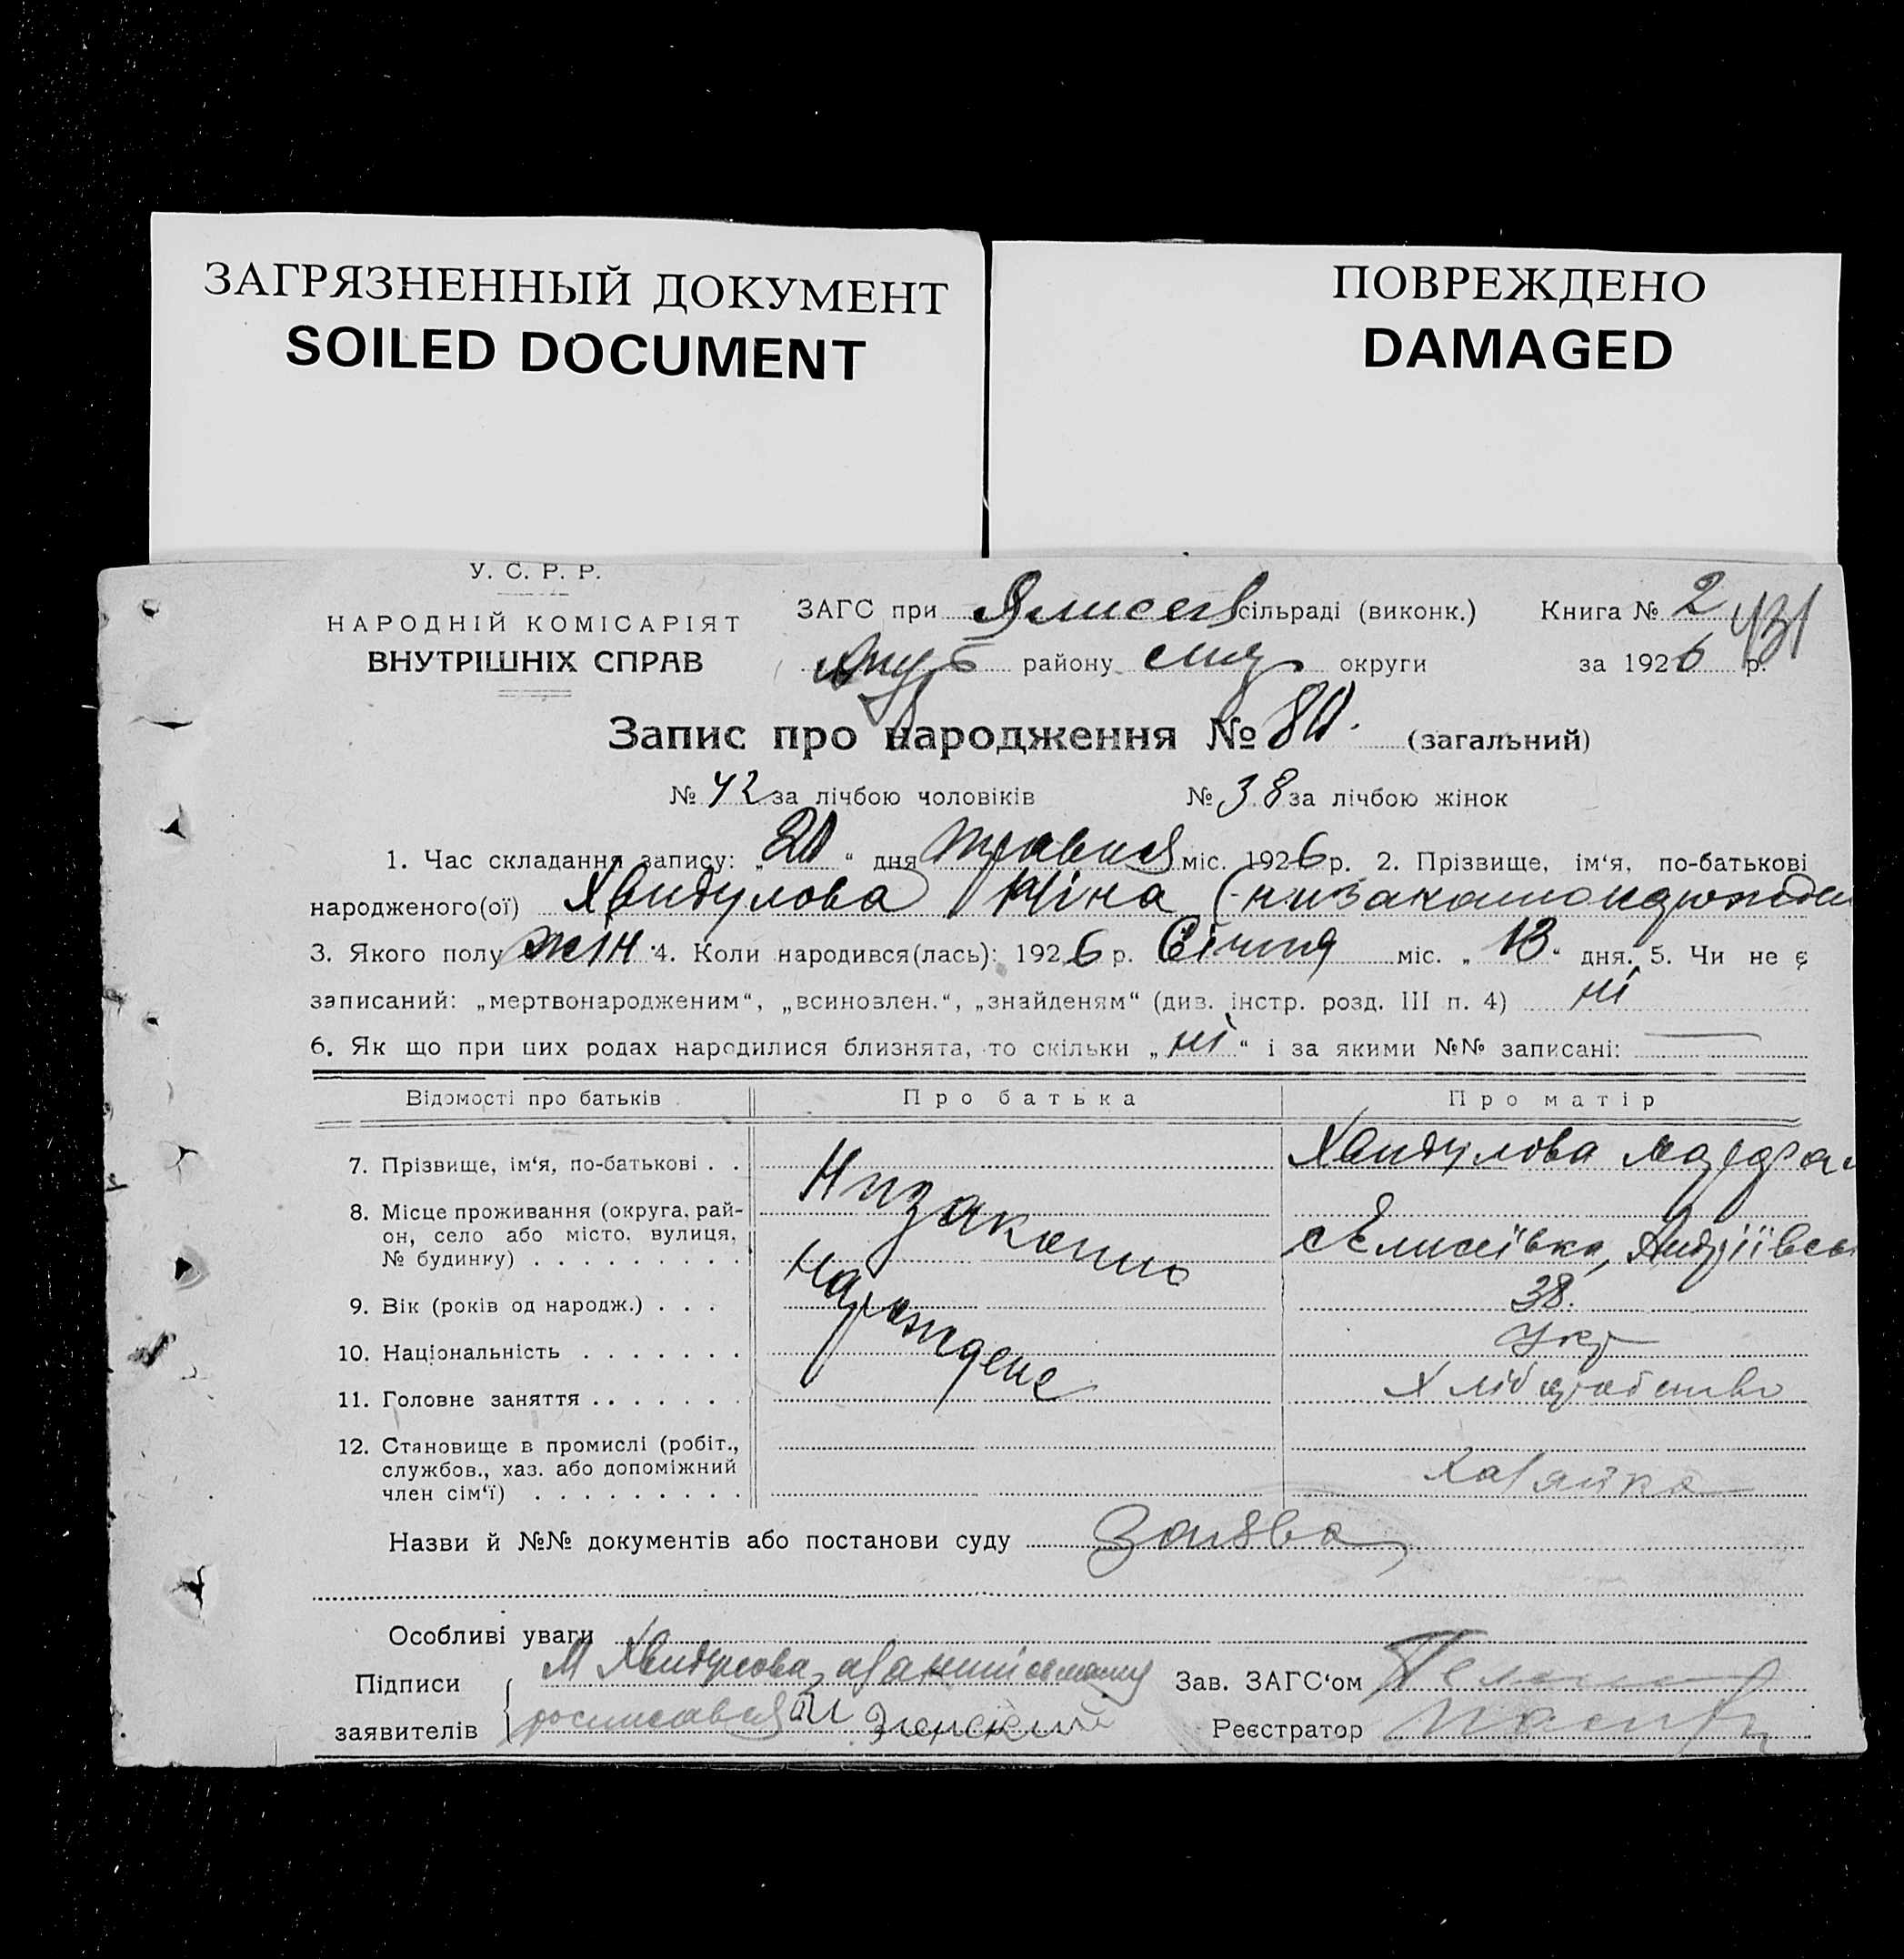 ЗАГРЯЗНЕННЫЙ ДОКУМЕНТ
SOILED DOCUMENT
ПОВРЕЖДЕНО
DAMAGED
У. С. Р. Р.
НАРОДНІЙ КОМІСАРІЯТ
ВНУТРІШНІХ СПРАВ
ЗАГС при сільраді (виконк.) Книга № 2
району округи за 1926 р.
Запис про народження № 80. (загальний)
№ 42 за лічбою чоловіків № 38 за лічбою жінок
1. Час складання запису: „20“ дня травня міс. 1926 р. 2. Прізвище, ім‘я, по-батькові
народженого(ої) Хандулова Ніна
3. Якого полу жін. 4. Коли народився(лась): 1926 р. Січня міс. „13“ дня. 5. Чи не є
записаний: „мертвонародженим“, „всиновлен.“, „знайденям“ (див. інстр. розд. III п. 4) ні
6. Як що при цих родах народилися близнята, то скільки „ні“ і за якими №№ записані: —
Відомості про батьків Про батька Про матір
7. Прізвище, ім‘я, по-батькові . . Хандулова
8. Місце проживання (округа, рай-
он, село або місто, вулиця, с Елисеївка,
№ будинку) . . . . . . . . .
9. Вік (років од народж.) . . . 38.
10. Національність . . . . . . . Укр
11. Головне заняття . . . . . . . Хліборобство
12. Становище в промислі (робіт.,
службов., хаз. або допоміжний
член сім‘ї) . . . . . . . . . Хазяйка
Низаконно
нарождене
Назви й №№ документів або постанови суду Заява
Особливі уваги
Підписи М Хандулова, Зав. ЗАГС‘ом
заявителів Реєстратор